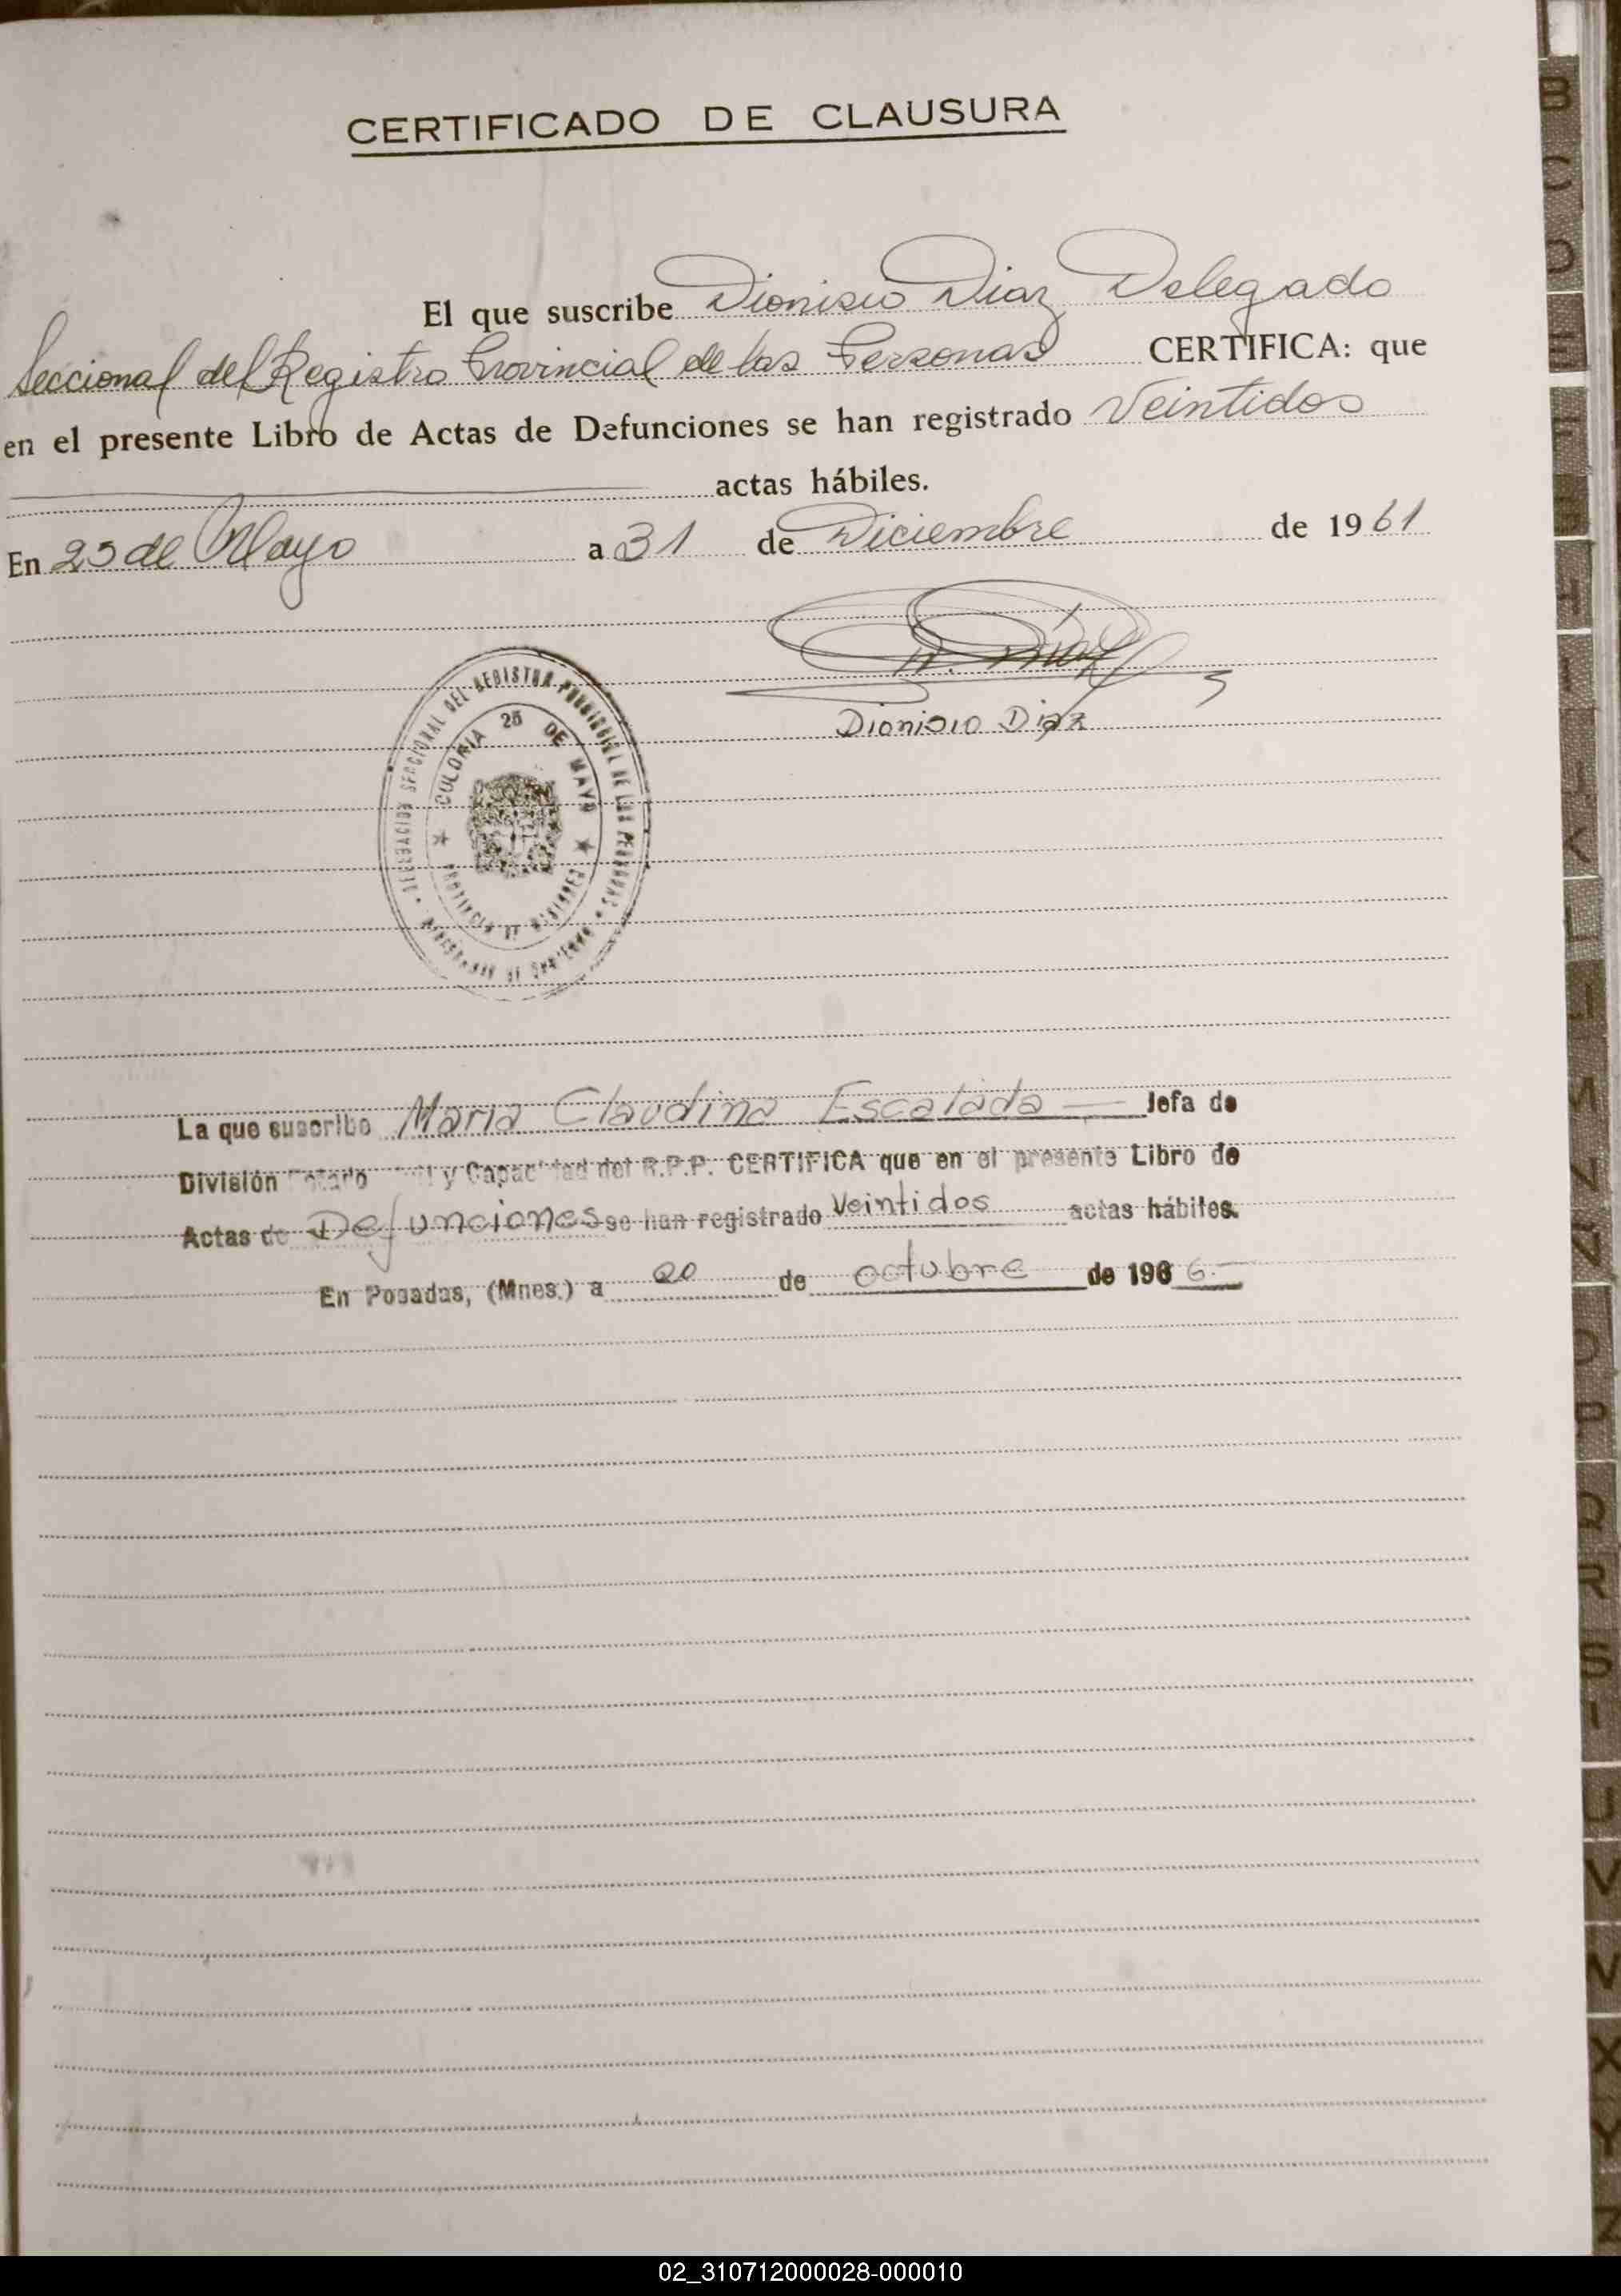 CERTIFICADO DE CLAUSURA
El que suscribe Dionisio Diaz Delegado
Seccional del Registro Provincial de las Personas CERTIFICA: que
en el presente Libro de Actas de Defunciones se han registrado Veintidos
actas hábiles.
En 25 de Mayo a 31 de Diciembre de 1961
D. Diaz
Dionisio Diaz
DELEGACION SECCIONAL DEL REGISTRO PROVINCIAL DE LAS PERSONAS
COLONIA 25 DE MAYO
PROVINCIA DE MISIONES
MINISTERIO DE GOBIERNO
La que suscribe Maria Claudina Escalada Jefa de
División y Capacidad del R.P.P. CERTIFICA que en el presente Libro de
Actas de Defunciones se han registrado Veintidos actas hábiles.
En Posadas, (Mnes.) a 20 de octubre de 1966.
B
C
D
E
F
G
H
I
J
K
L
M
N
Ñ
O
P
Q
R
S
T
U
V
W
X
Y
Z
02_310712000028-000010